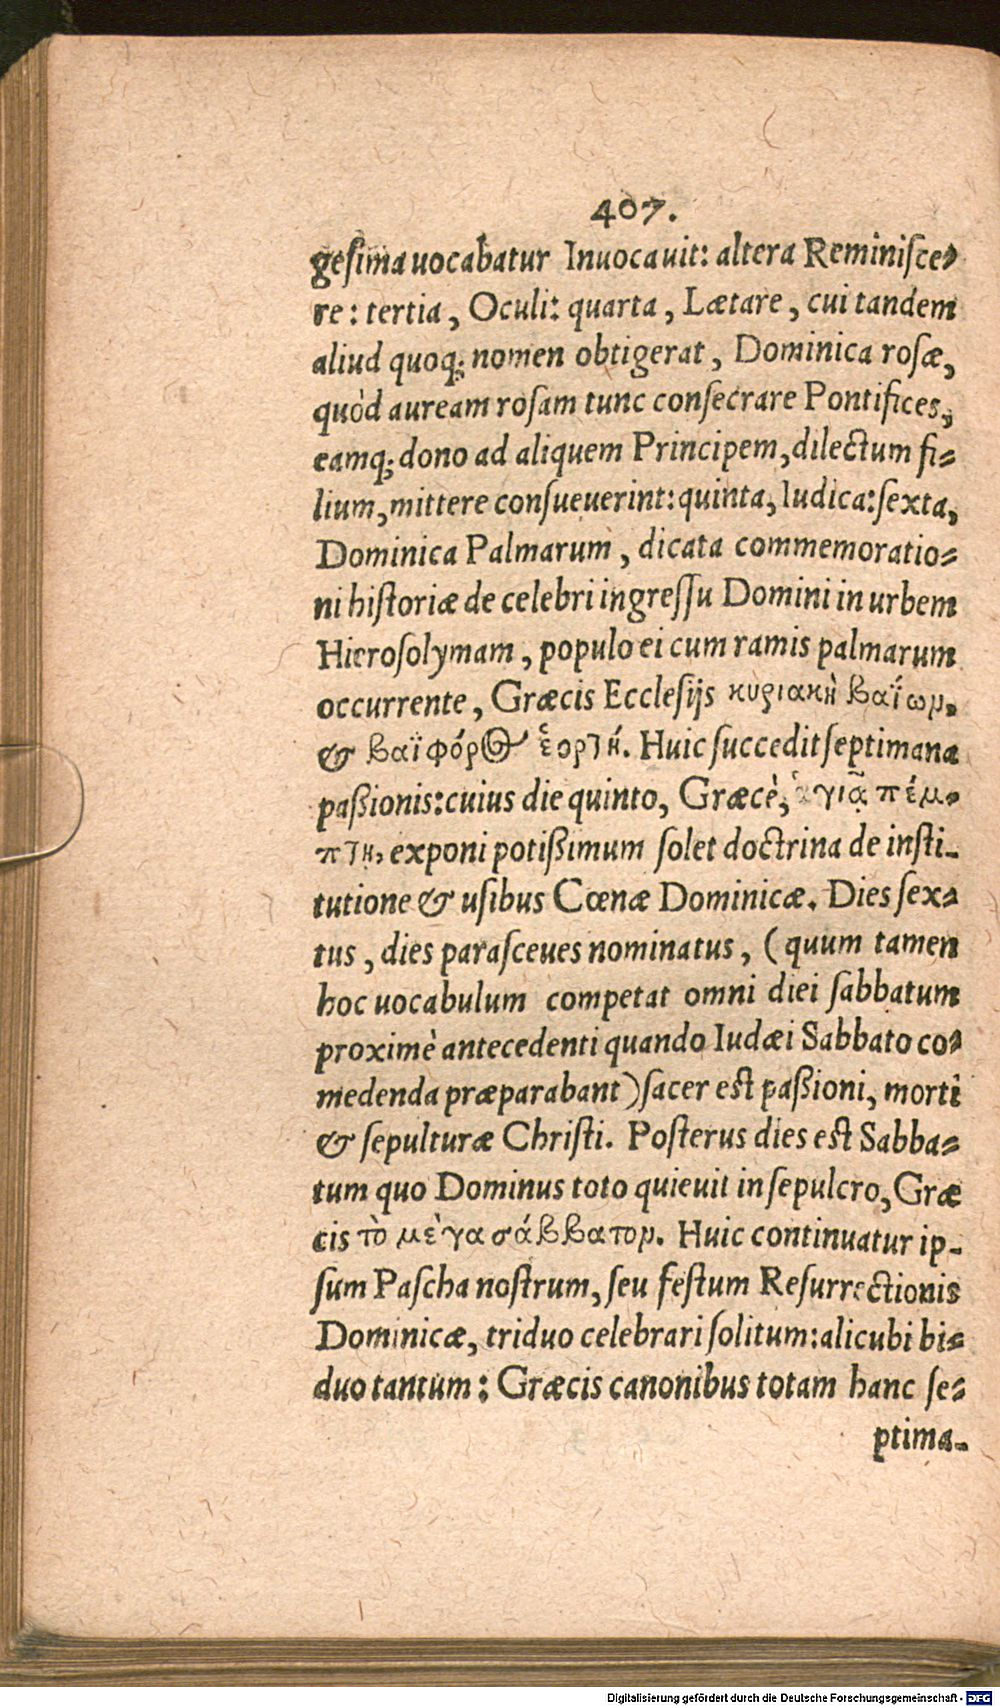 407.
gesima uocabatur Inuocauit: altera Reminisce-
re: tertia, Oculi: quarta, Lætare, cui tandem
aliud quoq; nomen obtigerat, Dominica rosæ,
quòd auream rosam tunc consecrare Pontifices,
eamq; dono ad aliquem Principem, dilectum fi-
lium, mittere consueuerint: quinta, Iudica: sexta,
Dominica Palmarum, dicata commemoratio-
ni historiæ de celebri ingressu Domini in urbem
Hierosolymam, populo ei cum ramis palmarum
occurrente, Græcis Ecclesijs κυριακὴ βαΐων,
& βαϊφόρος ἑορτή. Huic succedit septimana
paßionis: cuius die quinto, Græcè, ἁγιᾳ πέμ-
πτη, exponi potißimum solet doctrina de insti-
tutione & usibus Cœnæ Dominicæ. Dies sex-
tus, dies parasceues nominatus, (quum tamen
hoc uocabulum competat omni diei sabbatum
proximè antecedenti quando Iudæi Sabbato co-
medenda præparabant) sacer est paßioni, morti
& sepulturæ Christi. Posterus dies est Sabba-
tum quo Dominus toto quieuit in sepulcro, Græ
cis τὸ μέγα σάββατον. Huic continuatur ip-
sum Pascha nostrum, seu festum Resurrectionis
Dominicæ, triduo celebrari solitum: alicubi bi-
duo tantum: Græcis canonibus totam hanc se-
ptima-
Digitalisierung gefördert durch die Deutsche Forschungsgemeinschaft - DFG